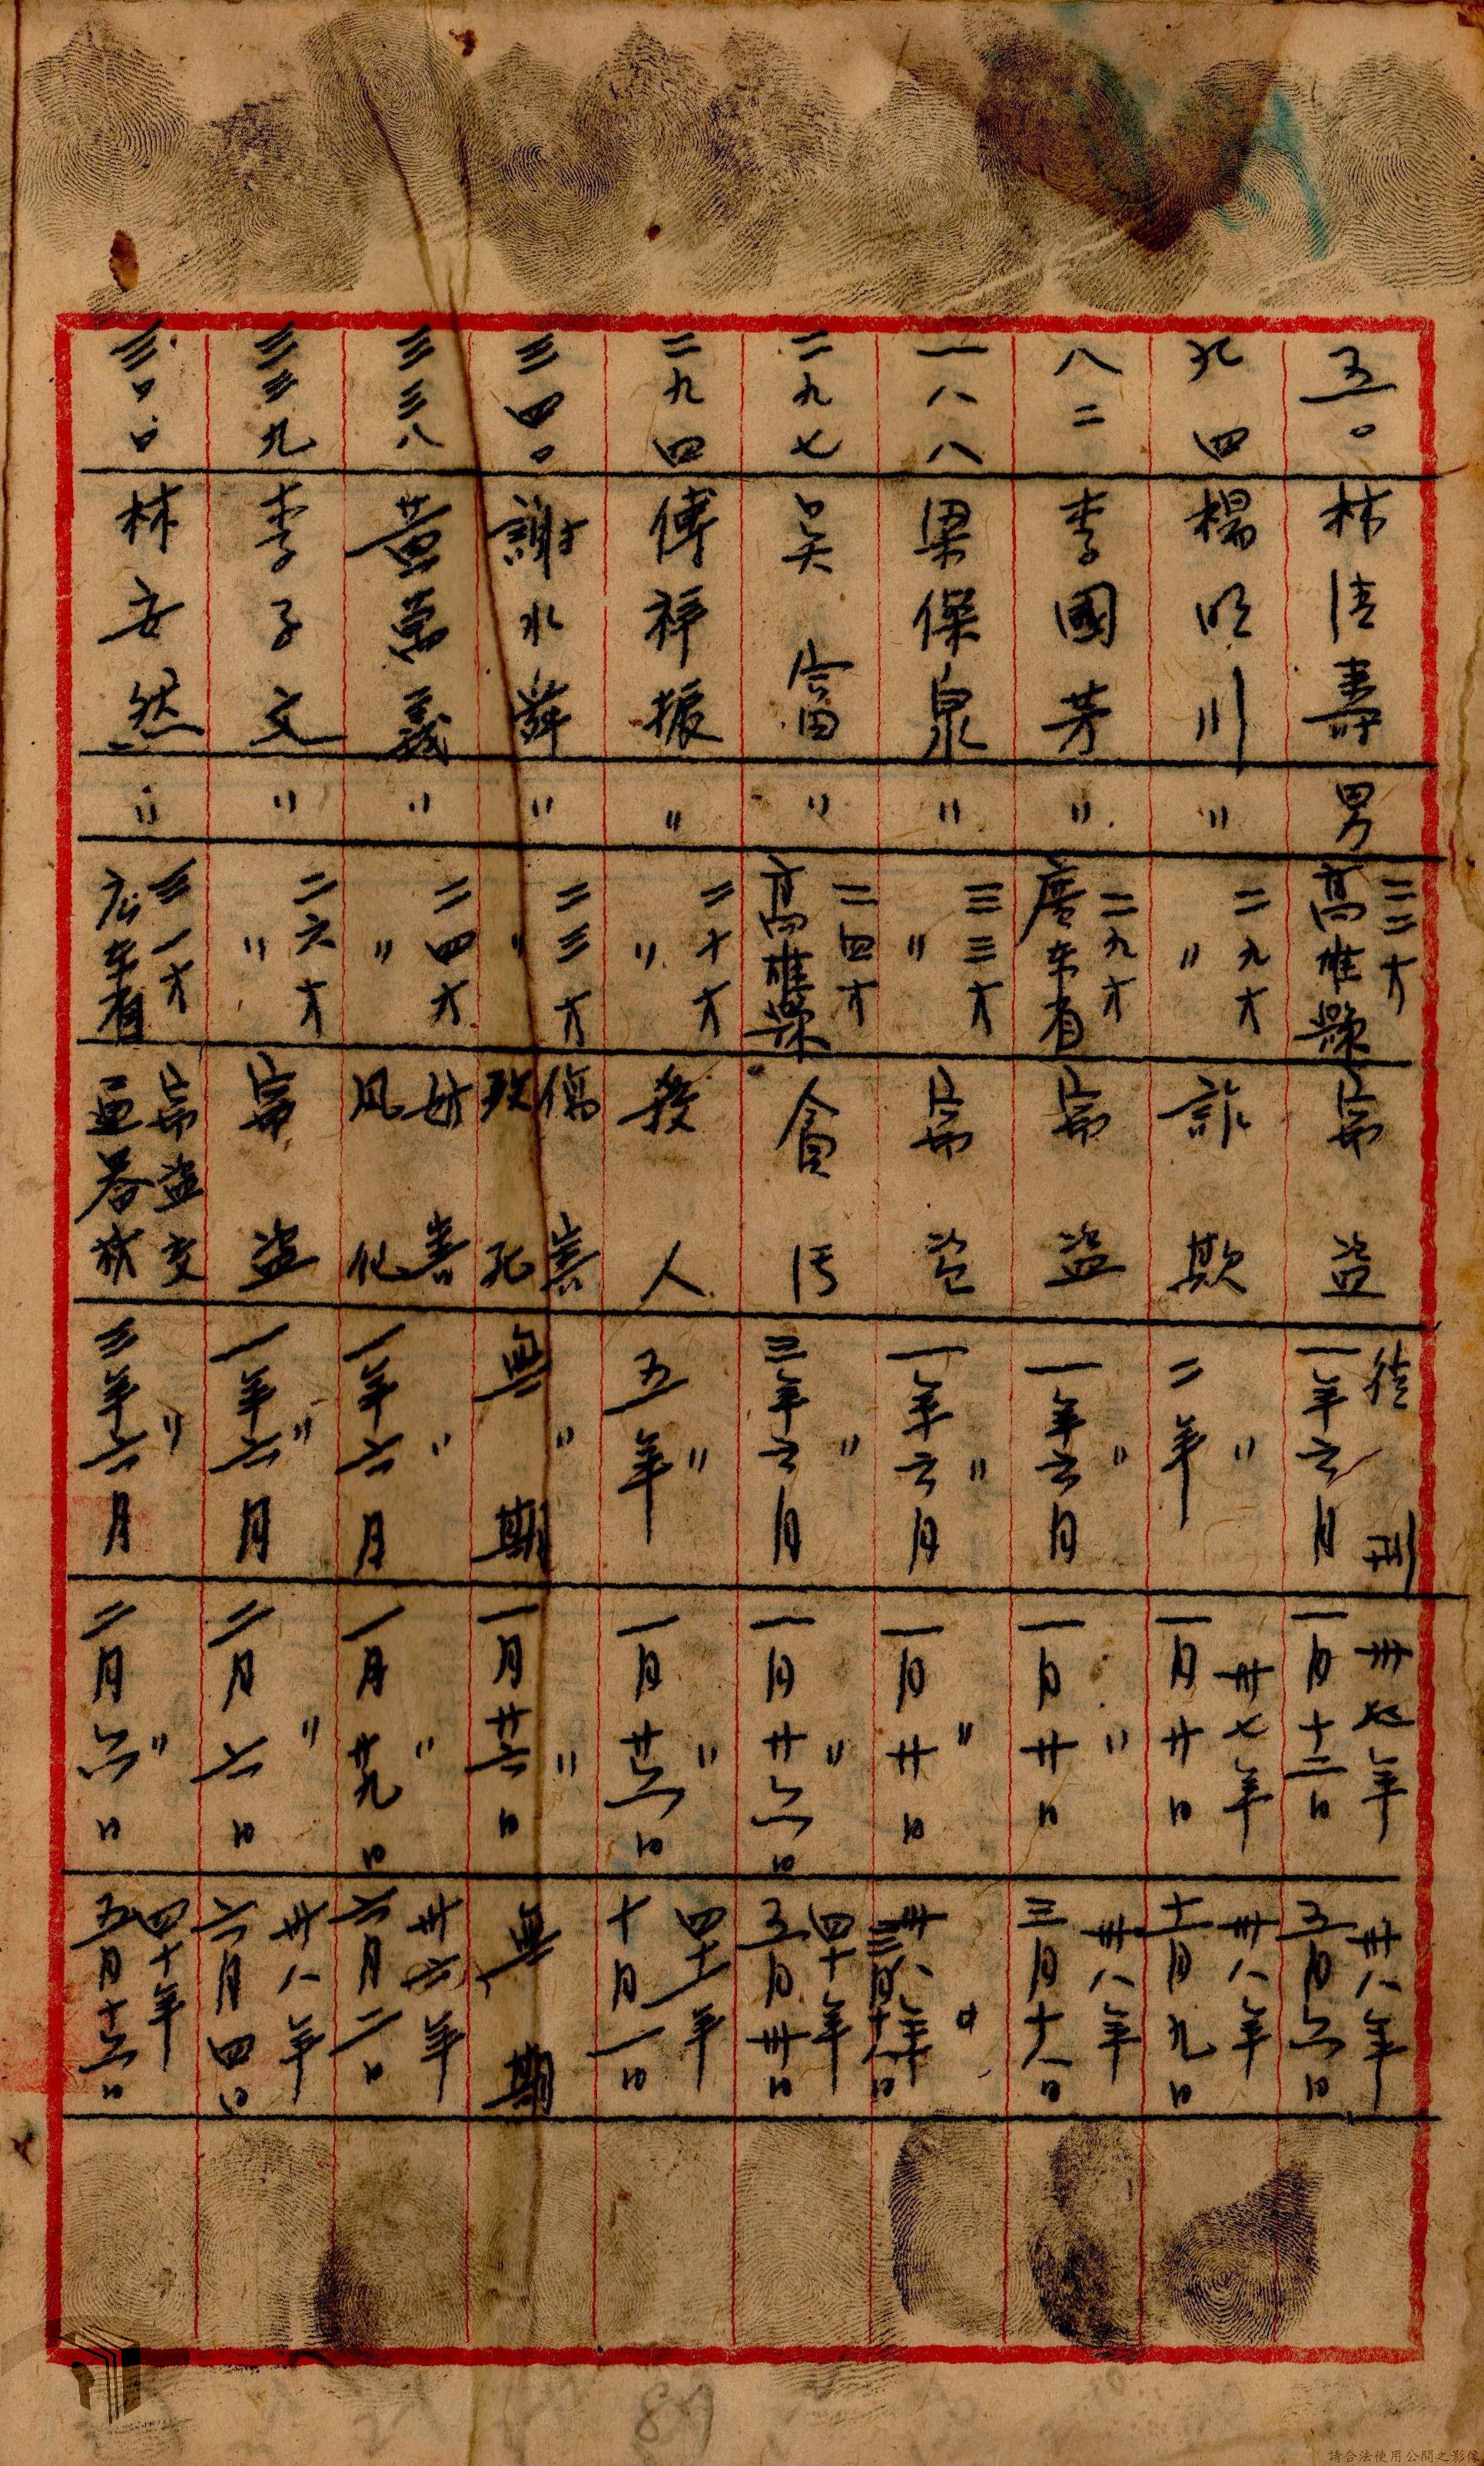 五〇 林清壽 男 二三才 高雄縣 竊盜 徒刑 一年六月 卅七年 一月十三日 卅八年 五月六日
九四 楊明川 〃 二九才 〃 詐欺 〃 二年 卅七年 一月廿日 卅八年 十一月九日
八二 李國芳 〃 二九才 廣東省 竊盜 〃 一年六月 〃 一月廿日 卅八年 三月十八日
一八八 梁保泉 〃 三三才 〃 竊盜 〃 一年六月 〃 一月廿日 卅八年 三月十八日
二九七 吴富 〃 二四才 高雄縣 貪污 〃 三年六月 〃 一月廿六日 四十年 五月卅日
二九四 傅祥振 〃 二十才 〃 殺人 〃 五年 〃 一月廿六日 四十一年 十月一日
三四〇 謝水 〃 二三才 〃 傷害致死 〃 無期 〃 一月廿六日 無期
三三八 黄萬義 〃 二四才 〃 妨害風化 〃 一年六月 〃 一月廿九日 卅六年 六月二日
三三九 李子文 〃 二六才 〃 竊盜 〃 一年六月 〃 二月六日 卅八年 六月四日
三〇〇 林安然 〃 三一才 広东省 竊盜 〃 三年六月 〃 二月六日 四十年 五月十六日
請合法使用公開之影像